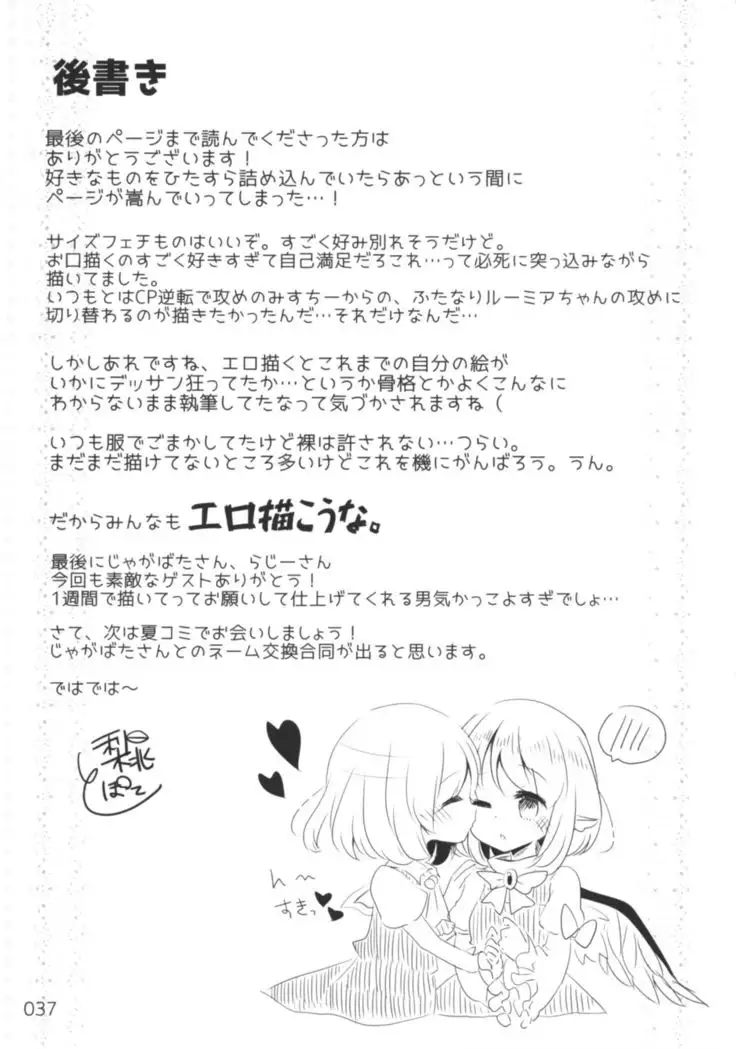 後書き
最後のページまで読んでくださった方は
ありがとうございます！
好きなものをひたすら詰め込んでいたらあっという間に
ページが嵩んでいってしまった…！
サイズフェチものはいいぞ。すごく好み別れそうだけど。
お口描くのすごく好きすぎて自己満足だろこれ…って必死に突っ込みながら
描いてました。
いつもとはCP逆転で攻めのみすちーからの、ふたなりルーミアちゃんの攻めに
切り替わるのが描きたかったんだ…それだけなんだ…
しかしあれですね、エロ描くとこれまでの自分の絵が
いかにデッサン狂ってたか…というか骨格とかよくこんなに
わからないまま執筆してたなって気づかされますね（
いつも服でごまかしてたけど裸は許されない…つらい。
まだまだ描けてないところ多いけどこれを機にがんばろう。うん。
だからみんなも エロ描こうな。
最後にじゃがばたさん、らじーさん
今回も素敵なゲストありがとう！
1週間で描いてってお願いして仕上げてくれる男気かっこよすぎでしょ…
さて、次は夏コミでお会いしましょう！
じゃがばたさんとのネーム交換合同が出ると思います。
ではでは～
梨桃
ぽて
んー
すきっ
037